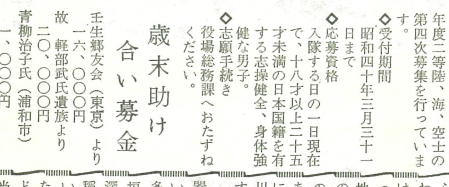 年度二等陸、海、空士の
第四次募集を行っていま
す。
◇受付期間
昭和四十年三月三十一
日まで
◇応募資格
入隊する日の一日現在
で、十八才以上二十五
才未満の日本国籍を有
する志操健全、身体強
健な男子。
◇志願手続き
役場総務課へおたずね
ください。
歳末助け
合い募金
壬生郷友会（東京）より
一六、〇〇〇円
故　軽部武氏遺族より
二〇、〇〇〇円
青柳治子氏（浦和市）
一、〇〇〇円